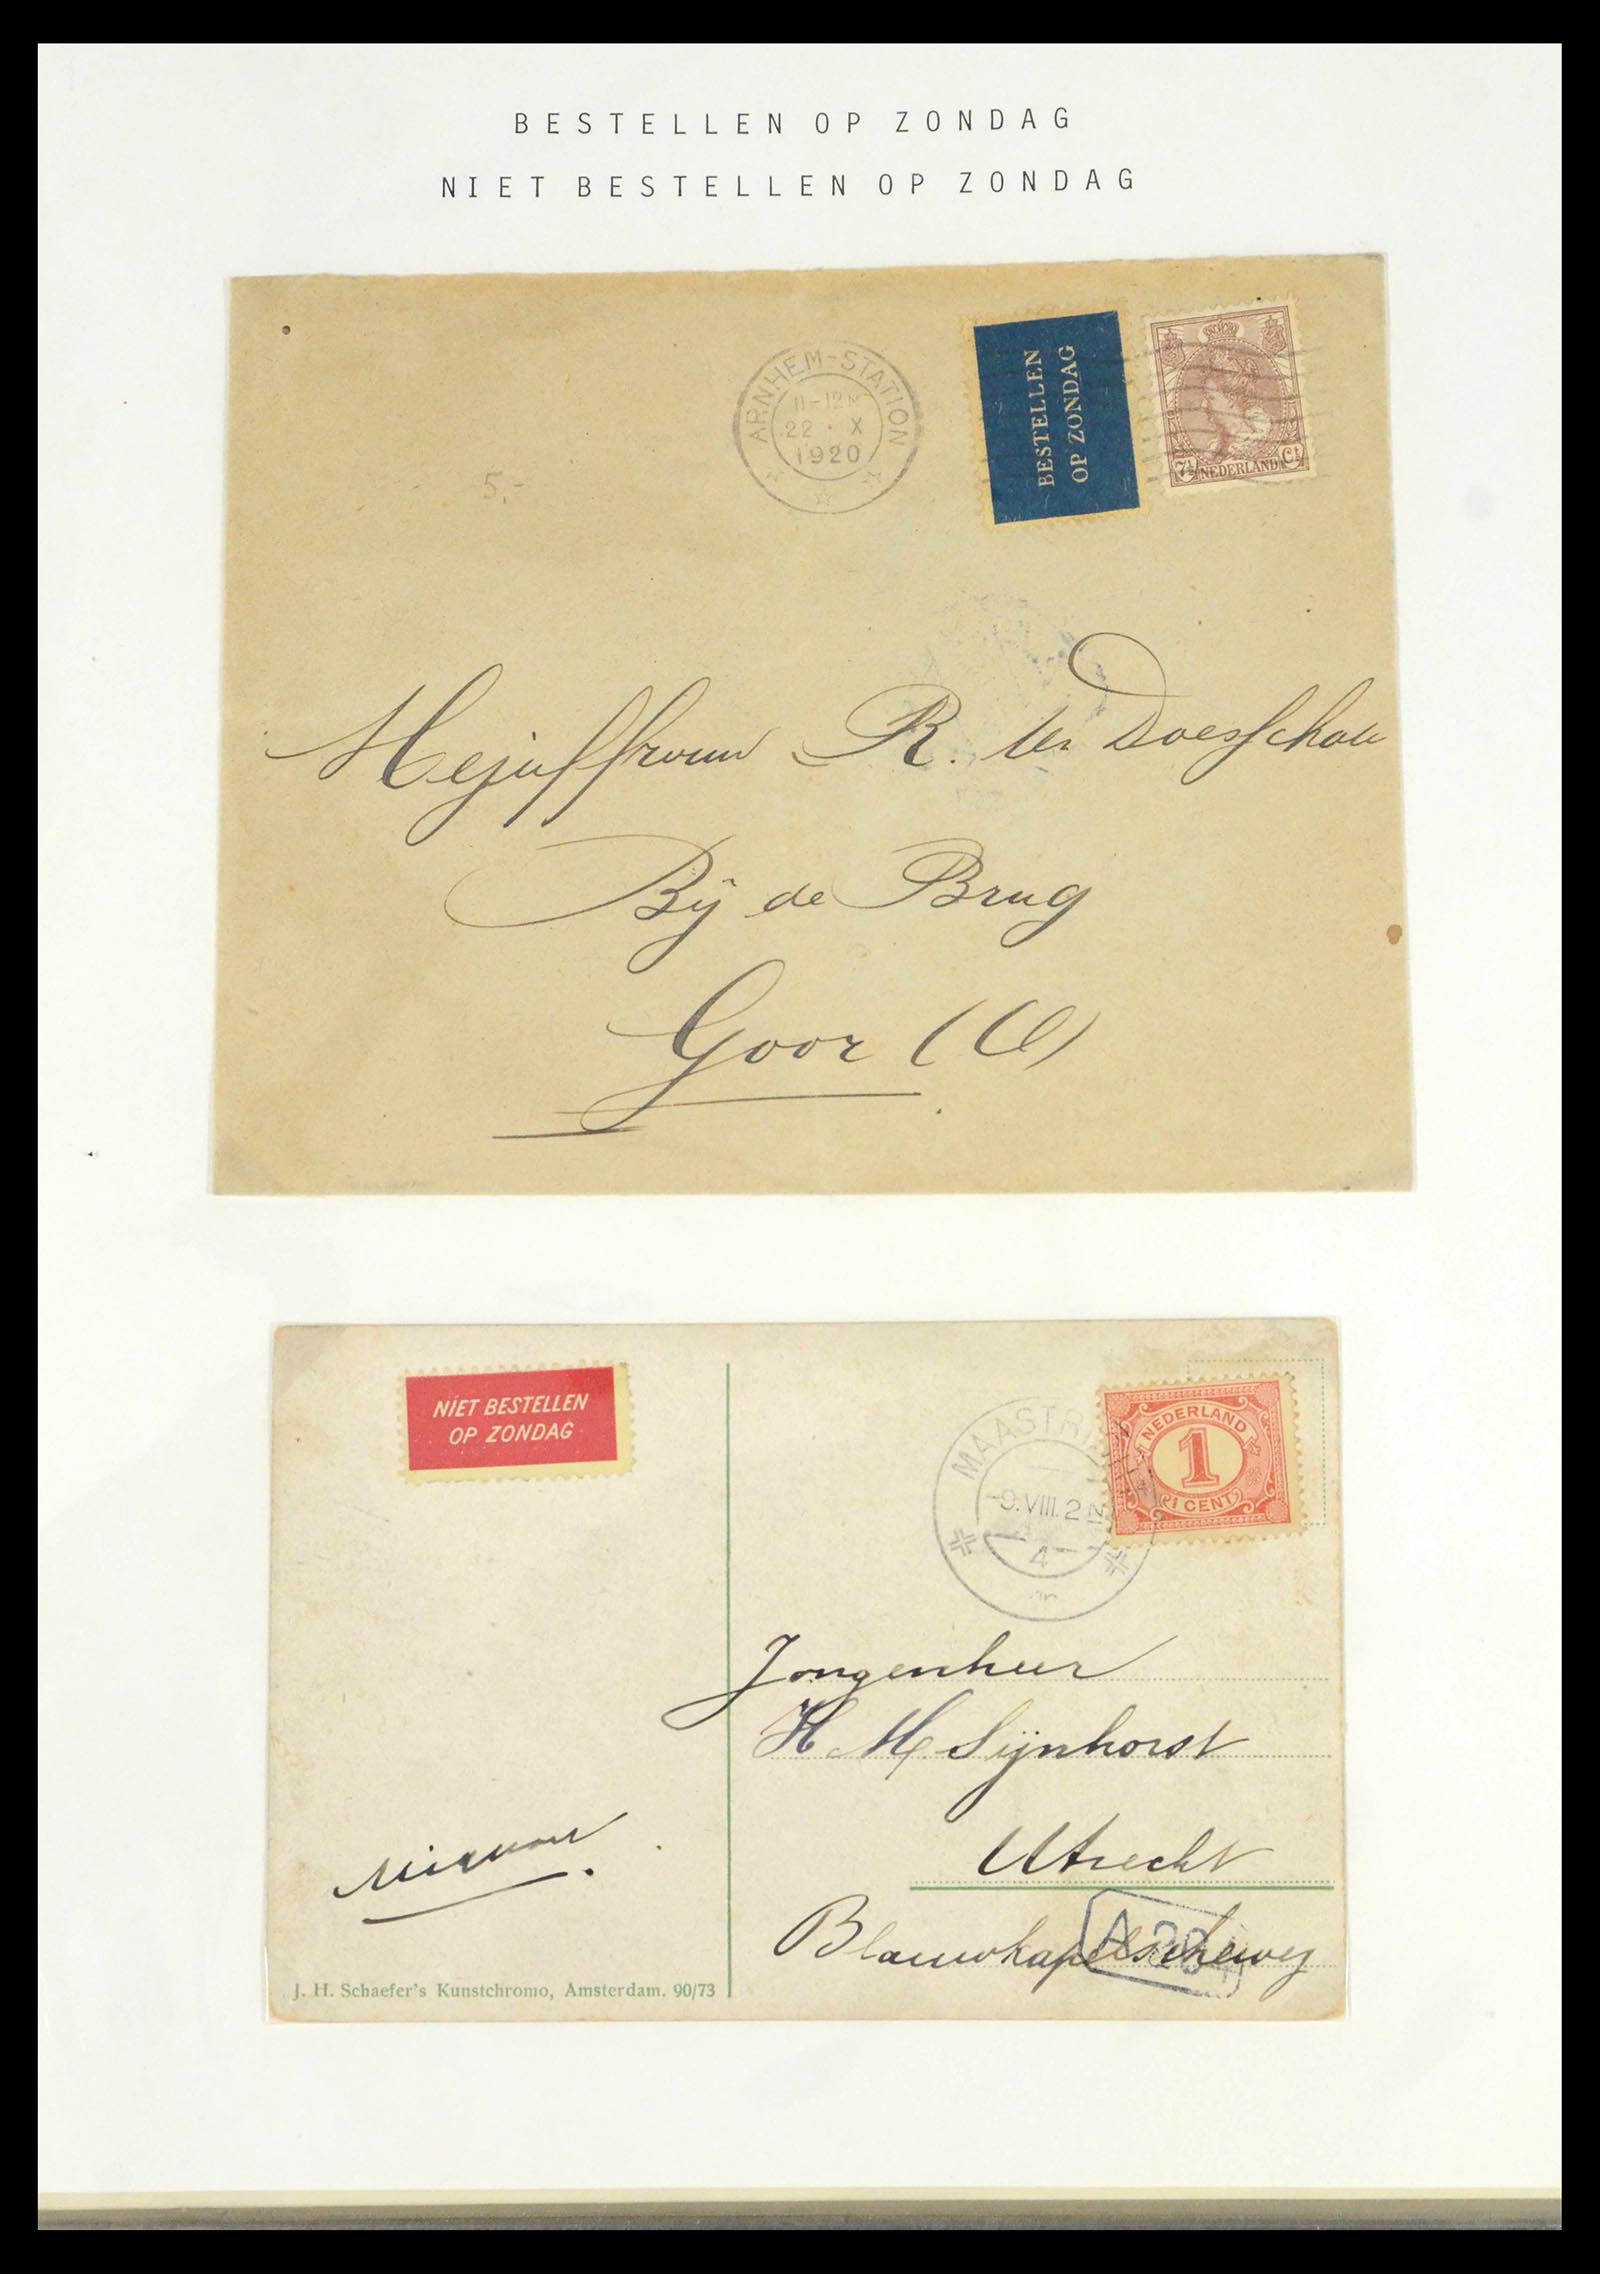 BESTELLEN OP ZONDAG
NIET BESTELLEN OP ZONDAG
ARNHEM-STATION
11-12
22 · X
1920
BESTELLEN
OP ZONDAG
7½ NEDERLAND Ct
5,-
Mejuffrouw R. ter Doesschate
Bij de Brug
Goor (O)
NIET BESTELLEN
OP ZONDAG
NEDERLAND
1
CENT
-9.VIII.2
4
Jongenheer
H M Sijnhorst
Utrecht
Blauwkapelscheweg
J. H. Schaefer's Kunstchromo, Amsterdam. 90/73